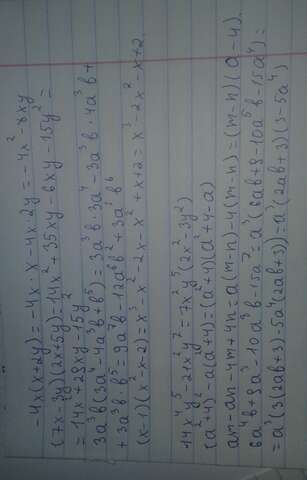 -4x(x+2y)=-4x·x-4x·2y=-4x²-8xy
(7x-3y)(2x+5y)=14x²+35xy-6xy-15y²=
=14x+28xy-15y²
3a³b(3a⁴-4a³b+b⁵)=3a³b·3a⁴-3a³b·4a³b+
+3a³b·b⁵=9a⁷b-12a⁶b²+3a³b⁶
(x-1)(x²-x-2)=x³-x²-2x-x²+x+2=x³-2x²-x+2.
14x⁴y⁵-21x²y⁷=7x²y⁵(2x²-3y²)
(a²+4)-a(a+4)=(a+4)(a+4-a)
am-an-4m+4n=a(m-n)-4(m-n)=(m-n)(a-4).
6a⁴b+8a³-10a³b-15a⁷=a³(6ab+8-10a⁵b-15a⁴)=
=a³(3(2ab+3)-5a⁴(2ab+3))=a³(2ab+3)(3-5a⁴)